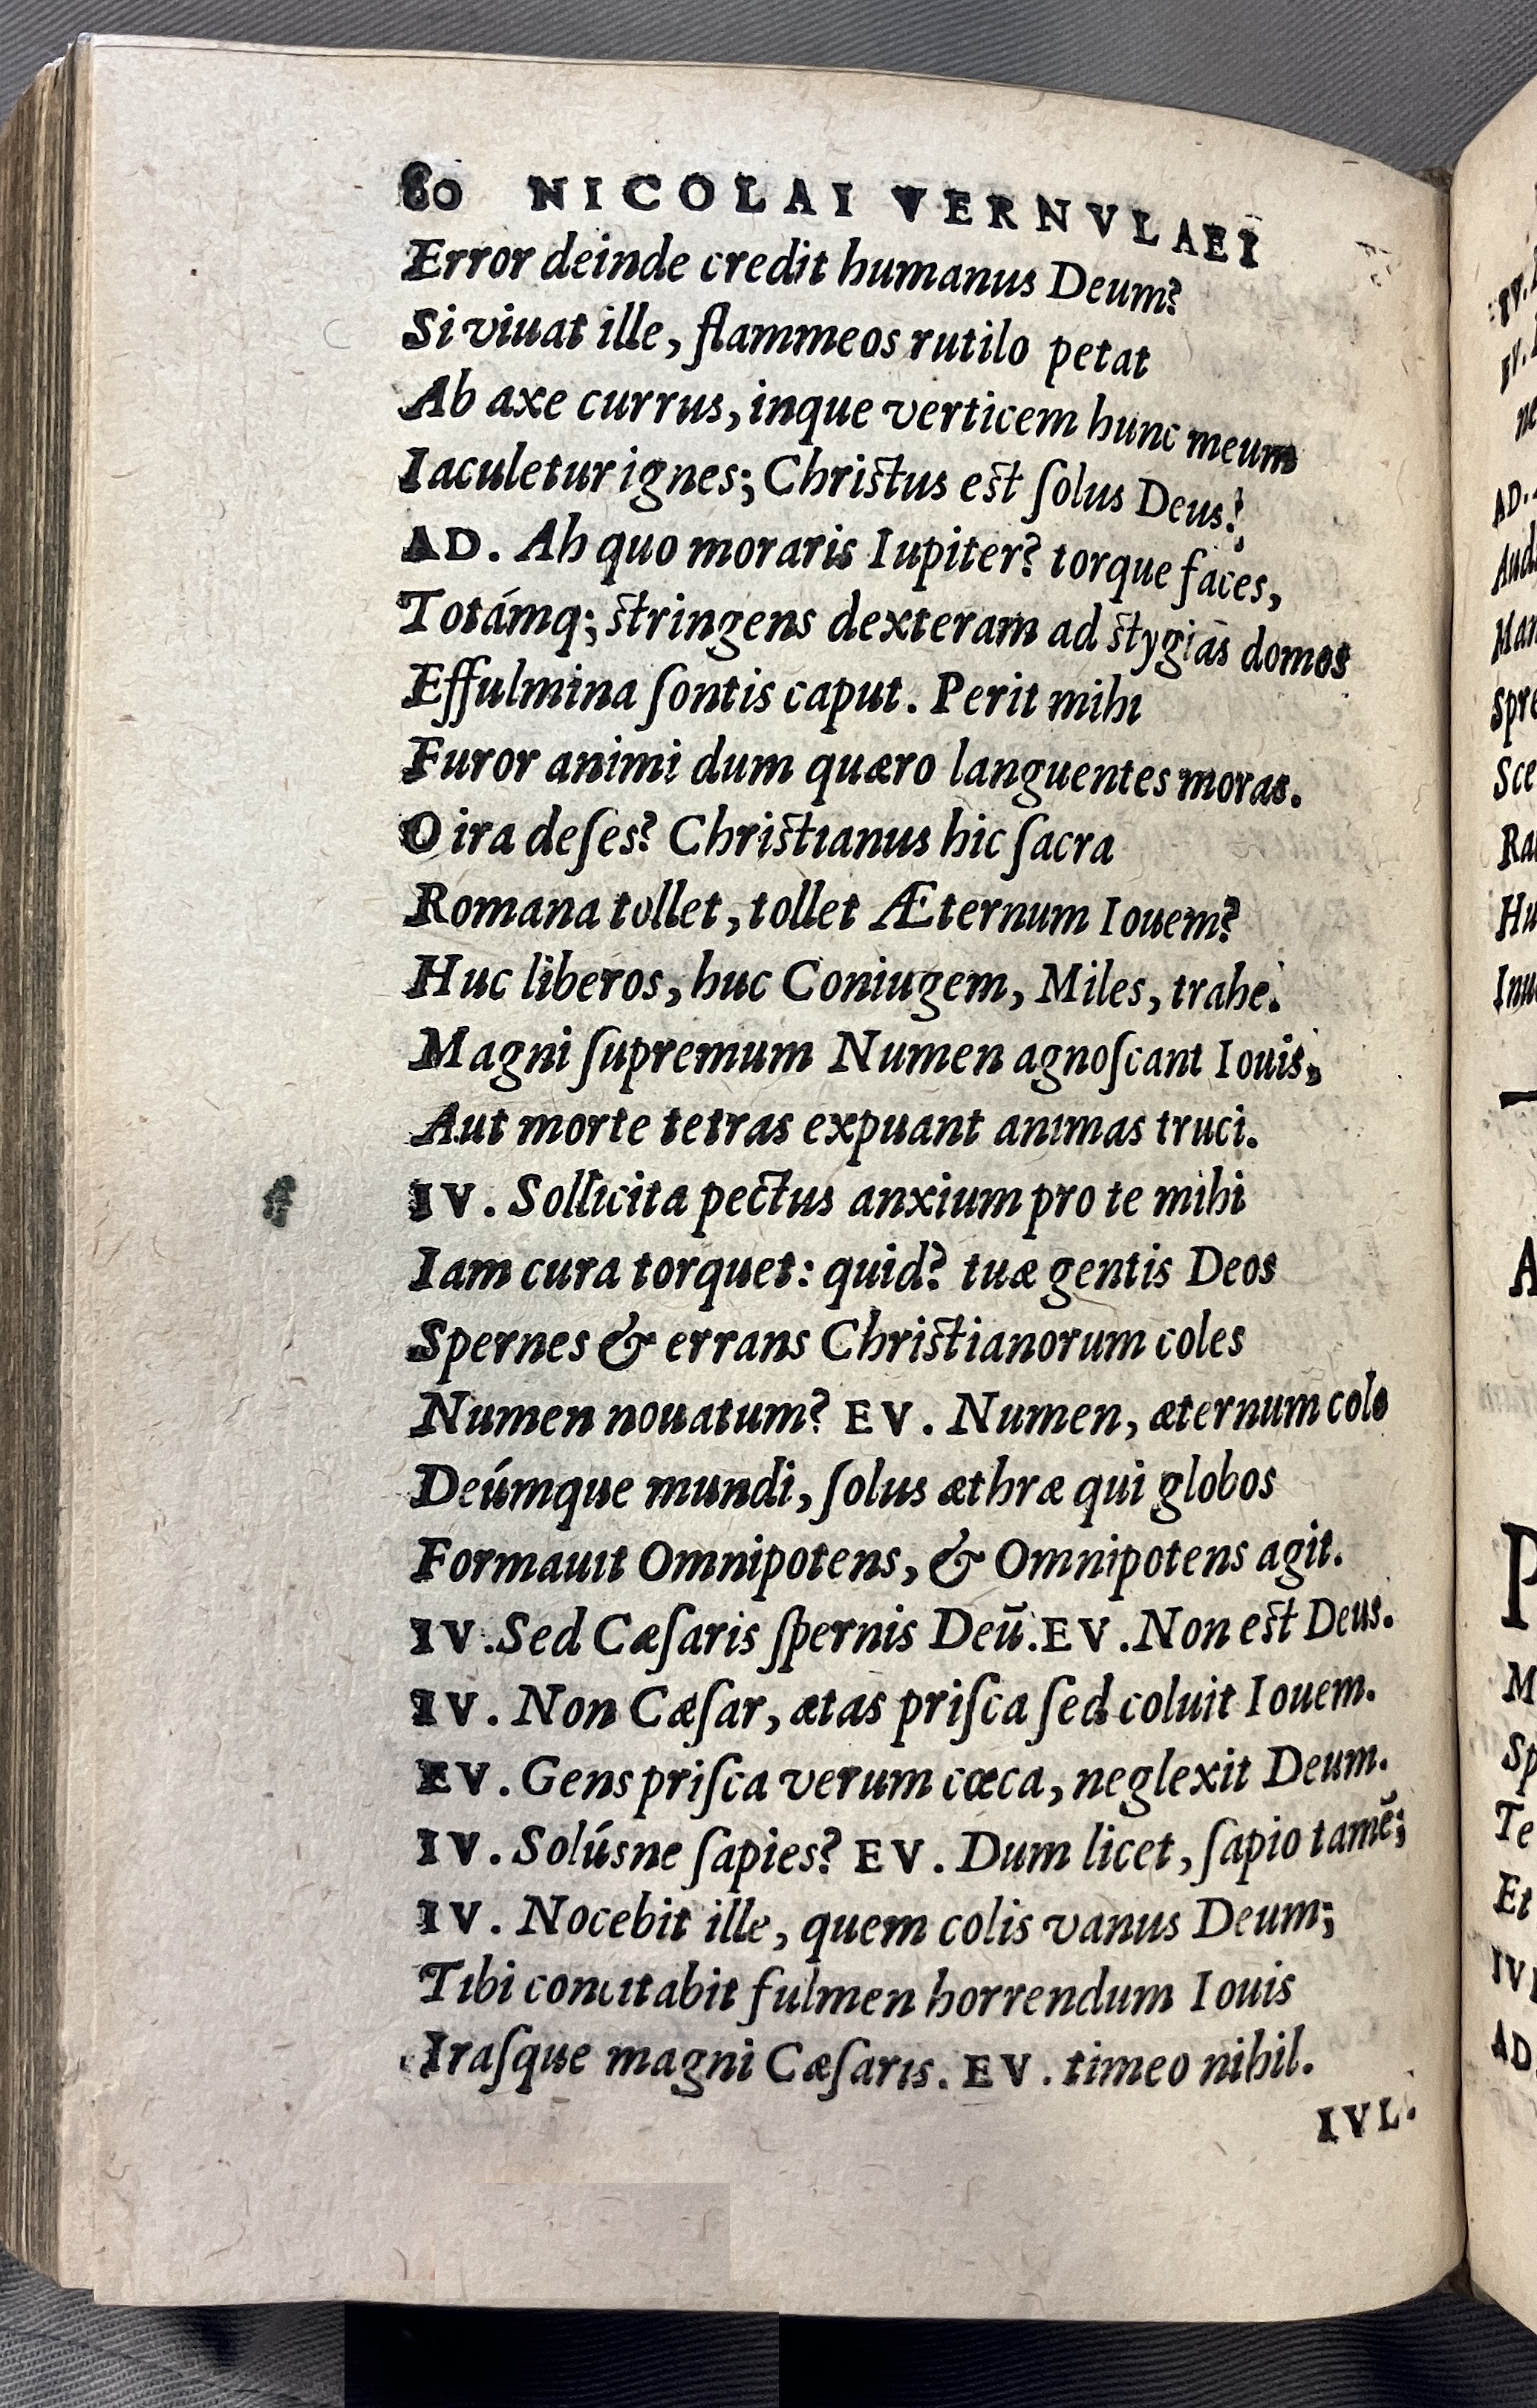 80 NICOLAI VERNVLAEI
Error deinde credit humanus Deum?
Si viuat ille, flammeos rutilo petat
Ab axe currus, inque verticem hunc meum
Iaculetur ignes; Christus est ſolus Deus.
AD. Ah quo moraris Iupiter? torque faces,
Totámq; stringens dexteram ad stygias domos
Effulmina ſontis caput. Perit mihi
Furor animi dum quæro languentes moras.
O ira deſes? Christianus hic ſacra
Romana tollet, tollet Æternum Iouem?
Huc liberos, huc Coniugem, Miles, trahe.
Magni ſupremum Numen agnoſcant Iouis,
Aut morte tetras expuant animas truci.
IV. Sollicita pectus anxium pro te mihi
Iam cura torquet: quid? tuæ gentis Deos
Spernes & errans Christianorum coles
Numen nouatum? EV. Numen, æternum colo
Deúmque mundi, ſolus æthræ qui globos
Formauit Omnipotens, & Omnipotens agit.
IV. Sed Cæſaris ſpernis Deū. EV. Non est Deus.
IV. Non Cæſar, ætas priſca ſed coluit Iouem.
EV. Gens priſca verum cæca, neglexit Deum.
IV. Solúsne ſapies? EV. Dum licet, ſapio tamē;
IV. Nocebit ille, quem colis vanus Deum;
Tibi concitabit fulmen horrendum Iouis
Iraſque magni Cæſaris. EV. timeo nihil.
IVL.